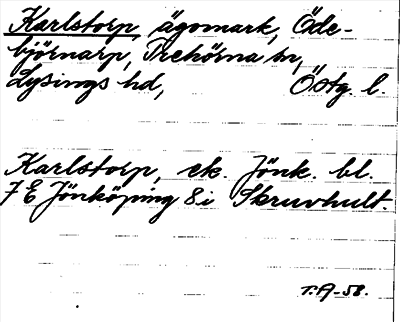 Karlstorp, ägomark, Öde-
björnarp, Trehörna sn,
Lysings hd, Östg. l.
Karlstorp, ek. Jönk. bl.
7 E Jönköping 8i Skruvhult.
T.A-58.